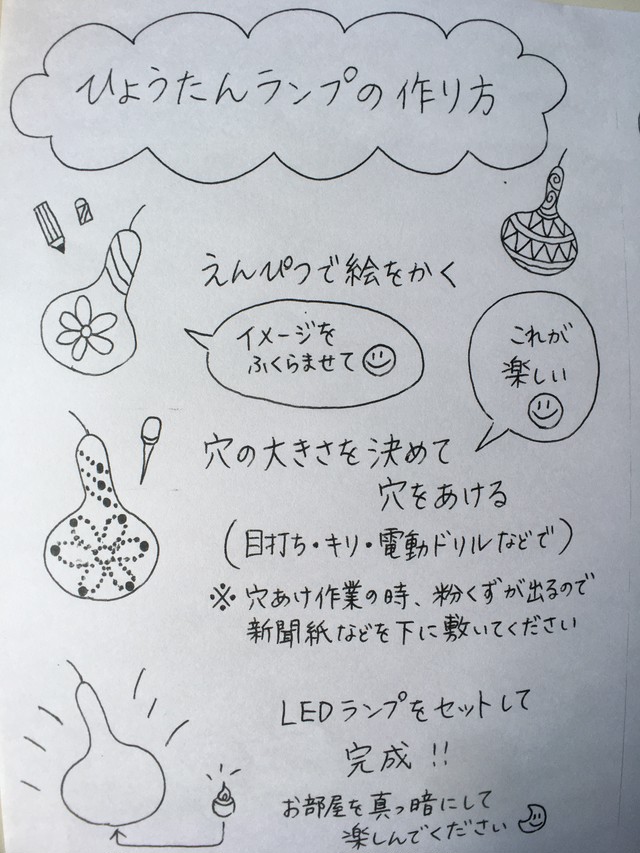 ひょうたんランプの作り方
えんぴつで絵をかく
イメージを
ふくらませて
これが
楽しい
穴の大きさを決めて
穴をあける
(目打ち・キリ・電動ドリルなどで)
※ 穴あけ作業の時、粉くずが出るので
新聞紙などを下に敷いてください
LEDランプをセットして
完成!!
お部屋を真っ暗にして
楽しんでください